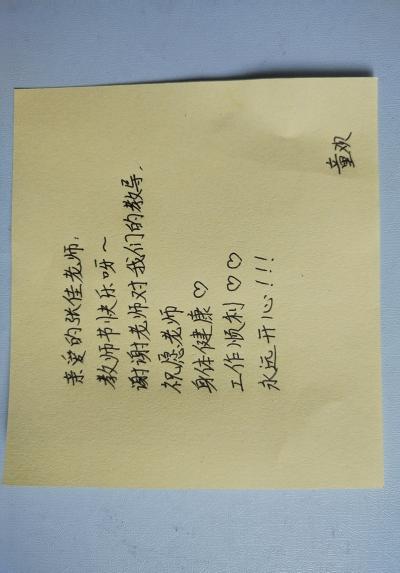 亲爱的张佳老师：
教师节快乐呀～
谢谢老师对我们的教导，
祝愿老师
身体健康♡
工作顺利♡♡
永远开心!!!
童欢